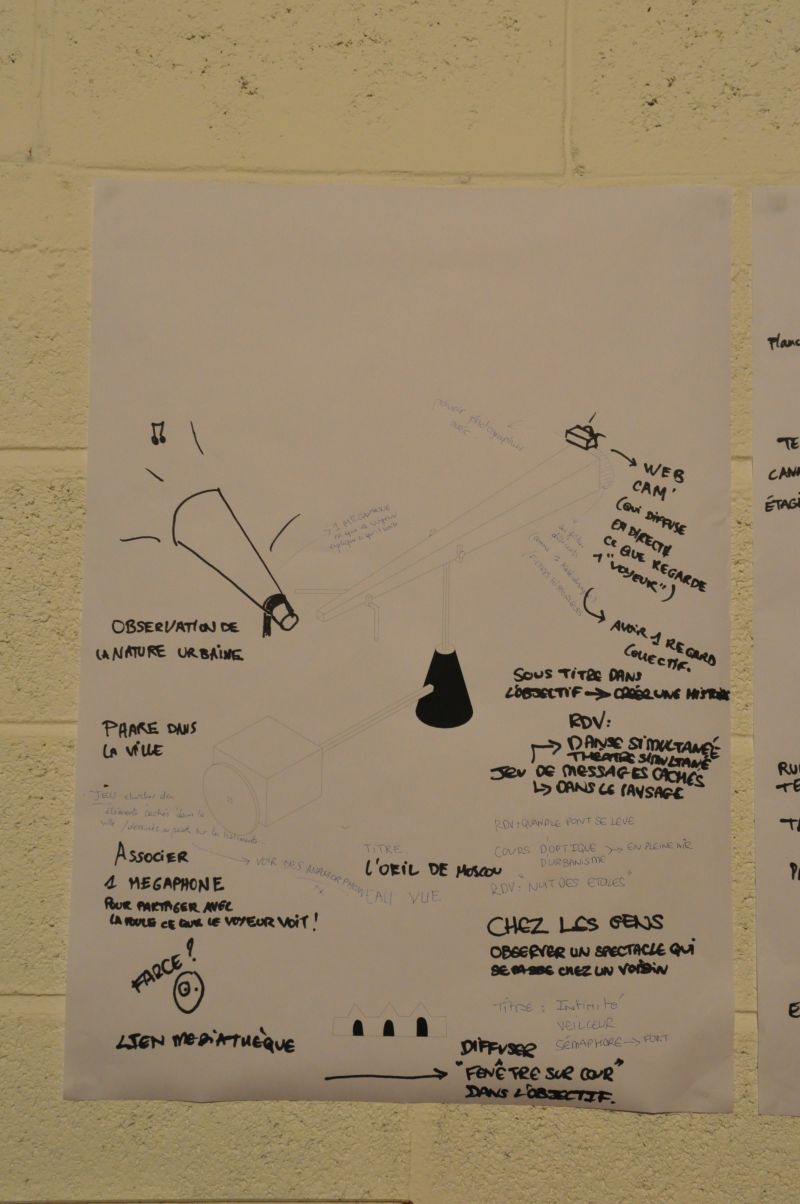 pouvoir photographier
avec
WEB
CAM'
(QUI DIFFUSE
EN DIRECT
CE QUE REGARDE
1 "VOYEUR")
> 1 MEGAPHONE
AVOIR 1 REGARD
COLLECTIF.
OBSERVATION DE
LA NATURE URBAINE
SOUS TITRE DANS
L'OBJECTIF → CRÉER UNE HISTOIRE
RDV:
DANSE SIMULTANÉE
THÉATRE SIMULTANÉ
JEU DE MESSAGES CACHÉS
DANS LE PAYSAGE
PHARE DANS
LA VILLE
JEU chercher des
éléments cachés dans la
ville / dessinés
RDV: QUAND LE PONT SE LEVE
COURS D'OPTIQUE → EN PLEIN AIR
D'URBANISME
RDV: "NUIT DES ETOILES"
ASSOCIER
1 MEGAPHONE
POUR PARTAGER AVEC
LA FOULE CE QUE LE VOYEUR VOIT!
VOIR DES ANAMORPHOSES
TITRE
L'OEIL DE MOSCOU
EAU VUE
CHEZ LES GENS
OBSERVER UN SPECTACLE QUI
SE PASSE CHEZ UN VOISIN
FARCE!
TITRE: Intimité
VEILLEUR
SÉMAPHORE → FORT
LIEN MEDIATHÈQUE
DIFFUSER
"FENÊTRE SUR COUR"
DANS L'OBJECTIF.
Planc
TE
CANA
ÉTAGÈ